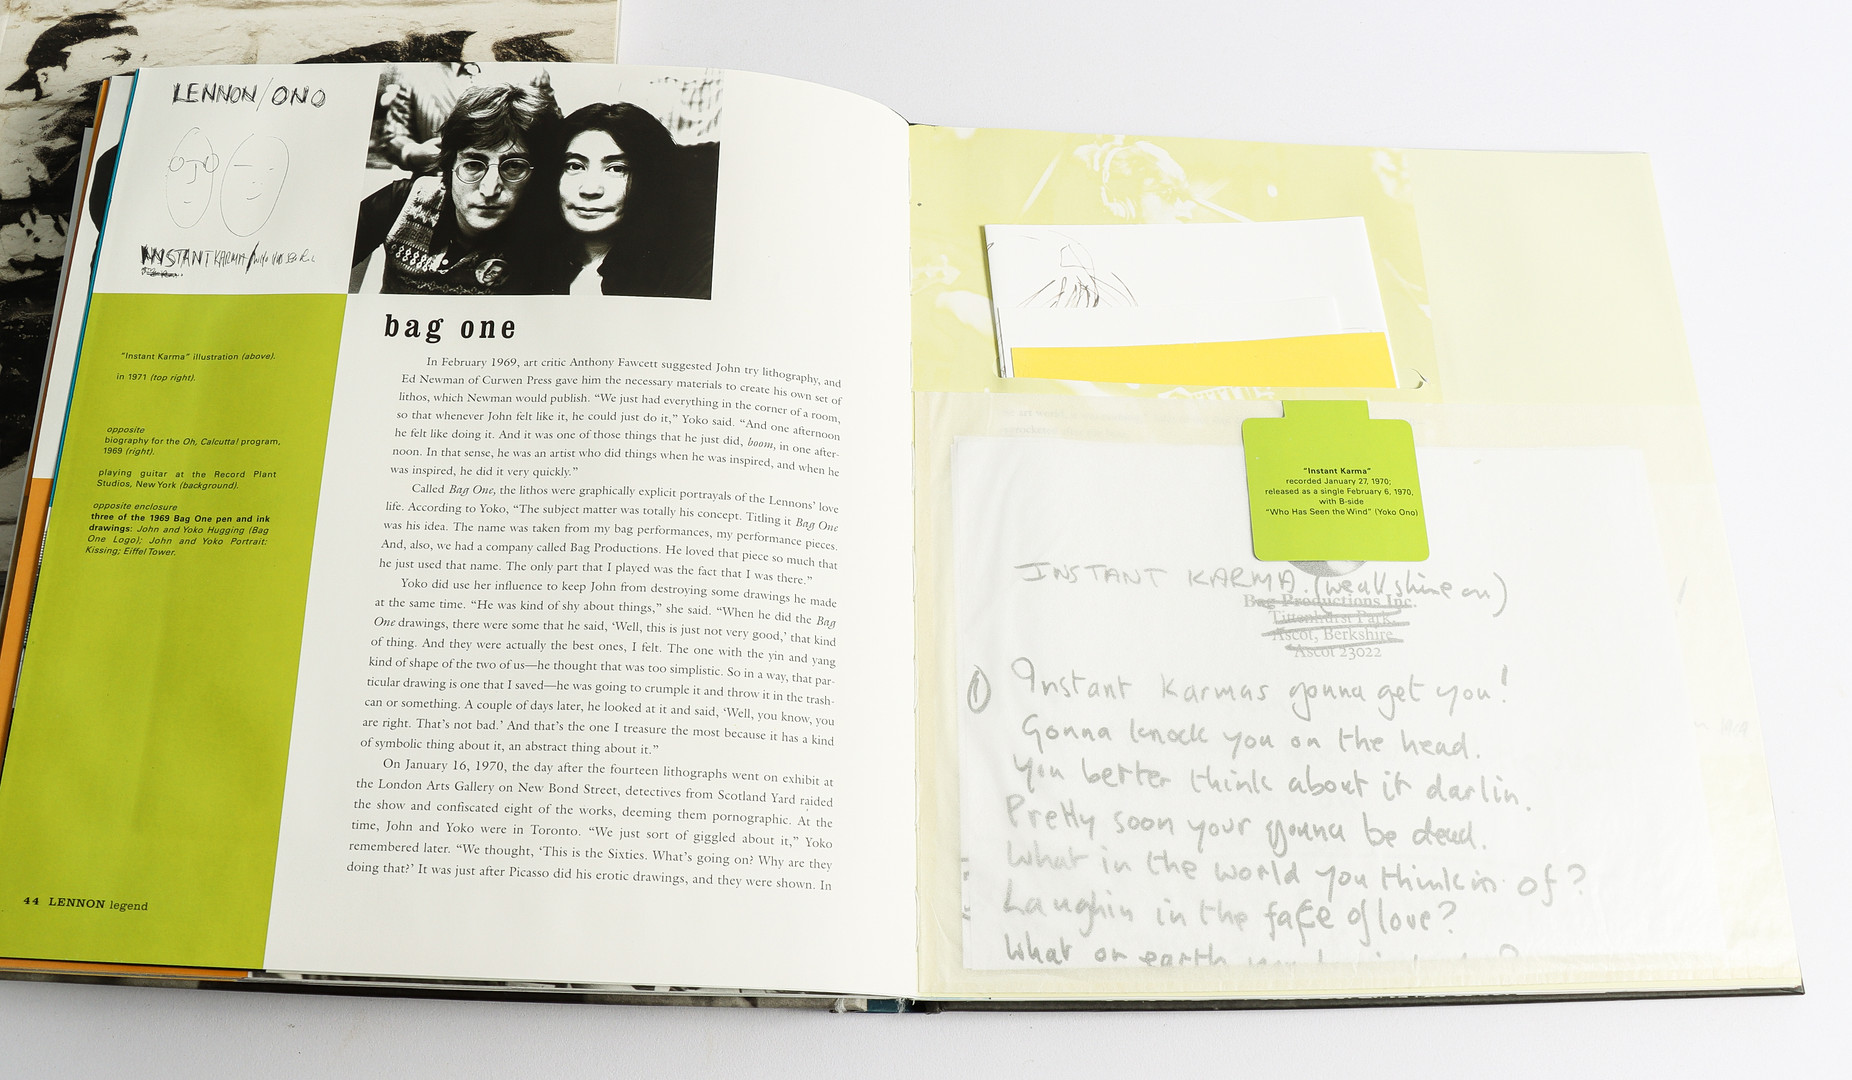 LENNON/ONO
INSTANT KARMA/
bag one
In February 1969, art critic Anthony Fawcett suggested John try lithography, and
Ed Newman of Curwen Press gave him the necessary materials to create his own set of
lithos, which Newman would publish. “We just had everything in the corner of a room,
so that whenever John felt like it, he could just do it,” Yoko said. “And one afternoon
he felt like doing it. And it was one of those things that he just did, boom, in one after-
noon. In that sense, he was an artist who did things when he was inspired, and when he
was inspired, he did it very quickly.”
Called Bag One, the lithos were graphically explicit portrayals of the Lennons’ love
life. According to Yoko, “The subject matter was totally his concept. Titling it Bag One
was his idea. The name was taken from my bag performances, my performance pieces.
And, also, we had a company called Bag Productions. He loved that piece so much that
he just used that name. The only part that I played was the fact that I was there.”
Yoko did use her influence to keep John from destroying some drawings he made
at the same time. “He was kind of shy about things,” she said. “When he did the Bag
One drawings, there were some that he said, ‘Well, this is just not very good,’ that kind
of thing. And they were actually the best ones, I felt. The one with the yin and yang
kind of shape of the two of us—he thought that was too simplistic. So in a way, that par-
ticular drawing is one that I saved—he was going to crumple it and throw it in the trash-
can or something. A couple of days later, he looked at it and said, ‘Well, you know, you
are right. That’s not bad.’ And that’s the one I treasure the most because it has a kind
of symbolic thing about it, an abstract thing about it.”
On January 16, 1970, the day after the fourteen lithographs went on exhibit at
the London Arts Gallery on New Bond Street, detectives from Scotland Yard raided
the show and confiscated eight of the works, deeming them pornographic. At the
time, John and Yoko were in Toronto. “We just sort of giggled about it,” Yoko
remembered later. “We thought, ‘This is the Sixties. What’s going on? Why are they
doing that?’ It was just after Picasso did his erotic drawings, and they were shown. In
“Instant Karma” illustration (above).
in 1971 (top right).
opposite
biography for the Oh, Calcutta! program,
1969 (right).
playing guitar at the Record Plant
Studios, New York (background).
opposite enclosure
three of the 1969 Bag One pen and ink
drawings: John and Yoko Hugging (Bag
One Logo); John and Yoko Portrait:
Kissing; Eiffel Tower.
44 LENNON legend
“Instant Karma”
recorded January 27, 1970;
released as a single February 6, 1970,
with B-side
“Who Has Seen the Wind” (Yoko Ono)
INSTANT KARMA. (we all shine on)
Bag Productions Inc.
Tittenhurst Park,
Ascot, Berkshire
Ascot 23022
1 Instant Karmas gonna get you!
Gonna knock you on the head.
you better think about it darlin.
Pretty soon your gonna be dead.
What in the world you thinkin of?
Laughin in the face of love?
What on earth